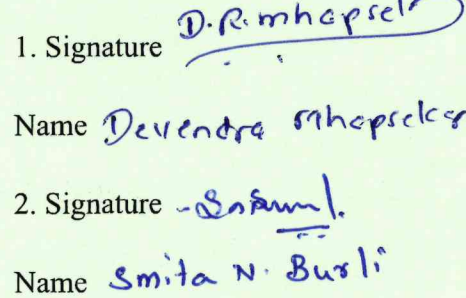 1. Signature D.R.mhapsek
Name Devendra mhapsekar
2. Signature
Name Smita N. Burli